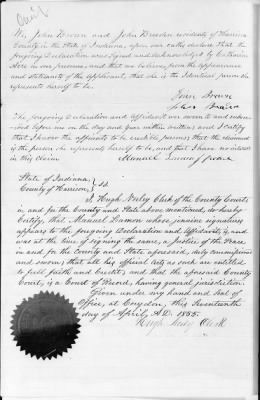 We, John Brown and John Breeden residents of Harrison
County in the State of Indiana, upon our oaths declare that the
foregoing Declaration was signed and acknowledged by Catharine
in our presence, and that we believe, from the appearance
and statements of the applicant, that she is the identical person she
represents herself to be.
John Brown
John
The foregoing Declaration and Affidavit was sworn to and subscribed
before me on the day and year within written; and I certify
that I know the affiants to be credible persons; that the claimant
is the person she represents herself to be, and that I have no interest
in this claim
Manuel Damon, Justice of Peace
State of Indiana,
County of Harrison, } Ss.
I, Hugh Neely Clerk of the County Court,
in and for the County and State above mentioned, do hereby
Certify, that Manuel Damon whose genuine signature
appears to the foregoing Declaration and Affidavit, is and
was at the time of signing the same, a Justice of the Peace
in and for the County and State aforesaid, duly commissioned
and sworn; that all his official Acts as such are entitled
to full faith and Credit; and that the aforesaid County
Court, is a Court of Record, having general jurisdiction.
Given under my hand and Seal of
Office, at Corydon, this Seventeenth
day of April, A.D. 1855.
Hugh Neely Clerk